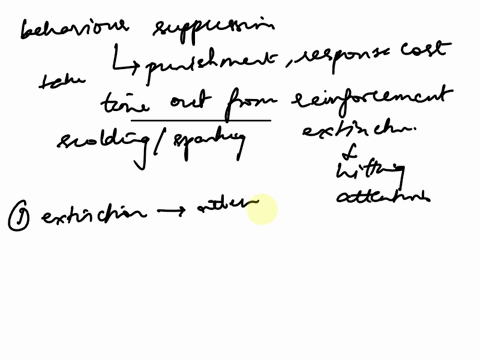 behaviour suppression
↳ punishment, response cost
take
time out from reinforcement
scolding/spanking extinctn.
&
hitting
attention
① extinction →